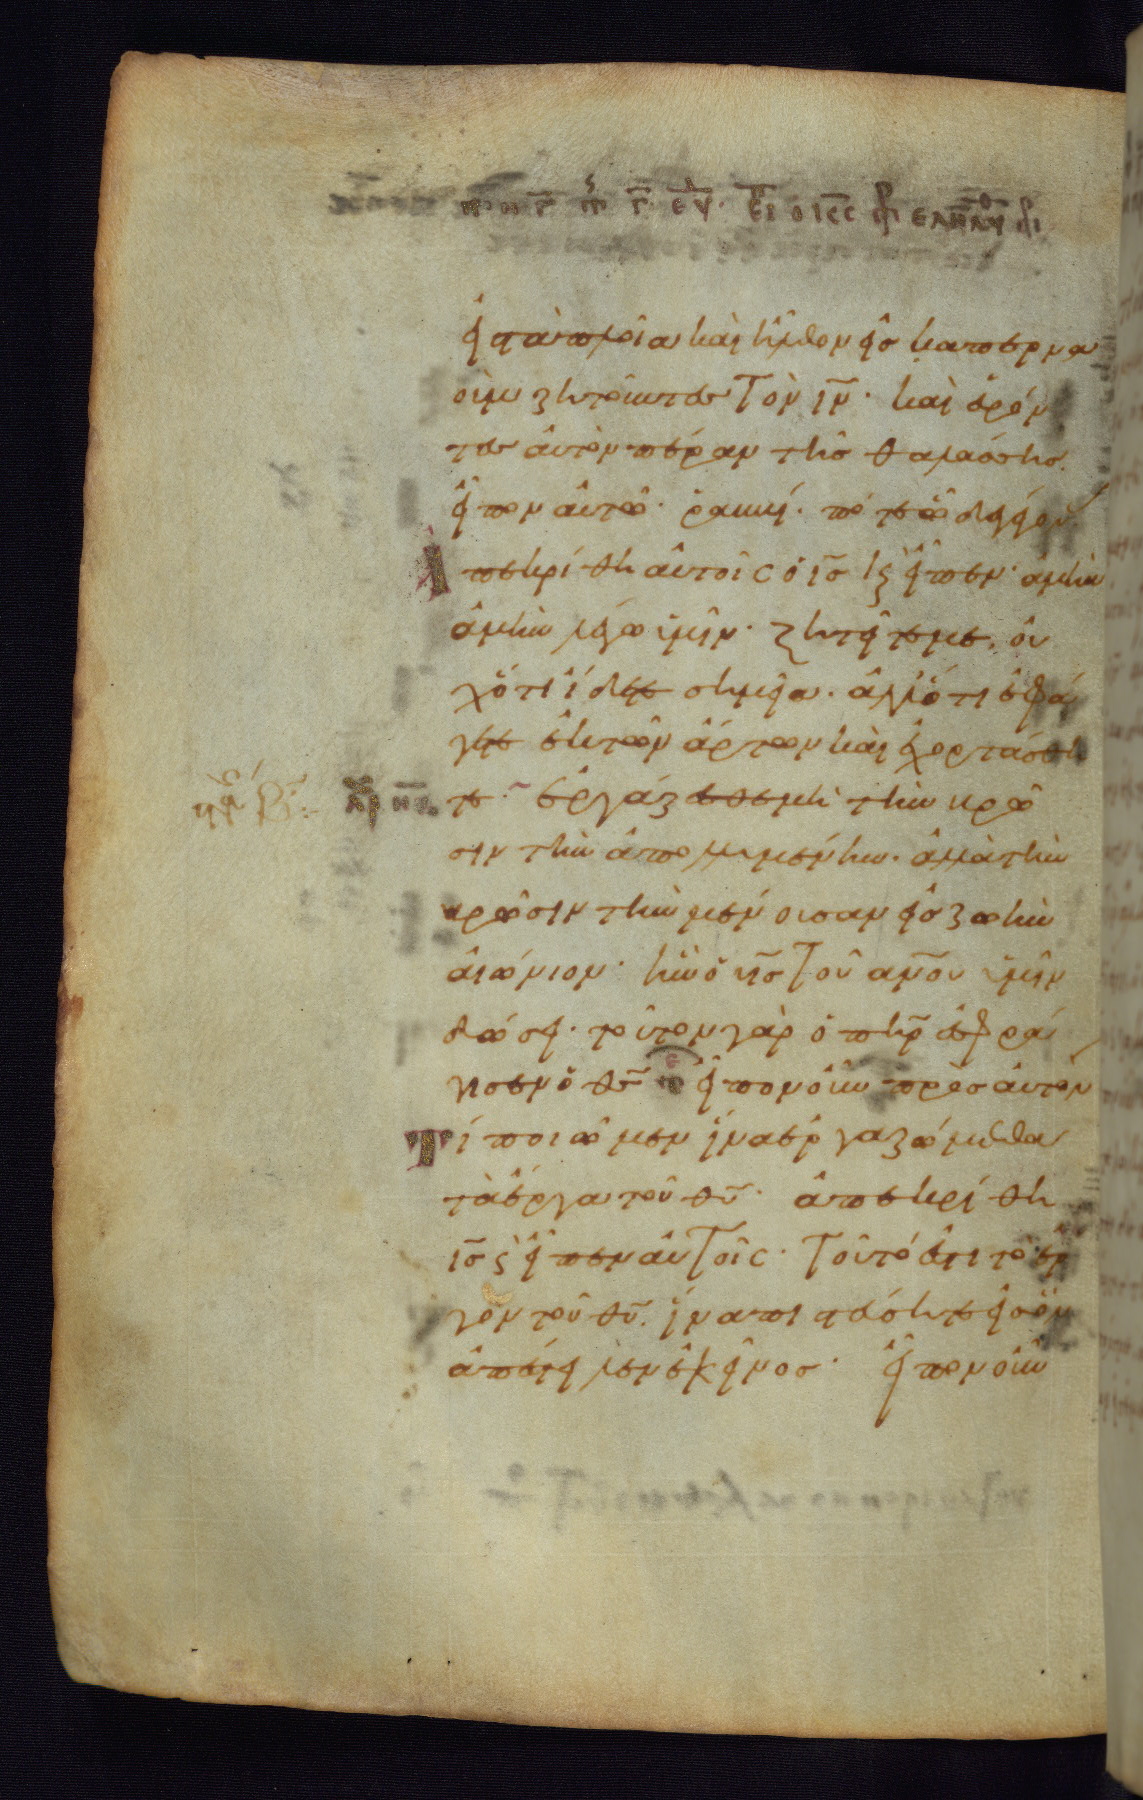 εἰς τὰ πλοῖα καὶ ἦλθον εἰς καπερνα
οὺμ ζητοῦντες τὸν ιν̅· καὶ εὑρόν
τες αὐτὸν πέραν τῆς θαλάσσης.
εἶπον αὐτῶ· ῥαββί· πότε ὧδε γέγον
Ἀπεκρίθη αὐτοῖς ὁ ις̅ κ εἶπεν· ἀμὴν
ἀμὴν λέγω ὑμῖν· ζητεῖτέ με, οὐ
χ ὅτι εἴδετε σημεῖα· ἀλλ ὅτι ἐφά
γετε ἐκ τῶν ἄρτων καὶ ἐχορτάσθη
τε· ἐργάζεσθε μὴ τὴν βρῶ
σιν τὴν ἀπολλυμένην· ἀλλὰ τὴν
βρῶσιν τὴν μένουσαν εἰς ζωὴν
αἰώνιον· ἣν ὁ υις̅ τοῦ ανου̅ ὑμῖν
δώσει· τοῦτον γὰρ ὁ πηρ̅ ἐσφρά
γισεν ὁ θς̅ εἶπον οὖν πρὸς αὐτόν
Τί ποιῶμεν ἵνα ἐργαζώμεθα
τὰ ἔργα τοῦ θυ̅· ἀπεκρίθη
ις̅ κ εἶπεν αὐτοῖς· τοῦτό ἐστι τὸ ἔρ
γον τοῦ θυ̅· ἵνα πιστεύσητε εἰς ὃν
ἀπέστειλεν ἐκεῖνος· εἶπον οὖν